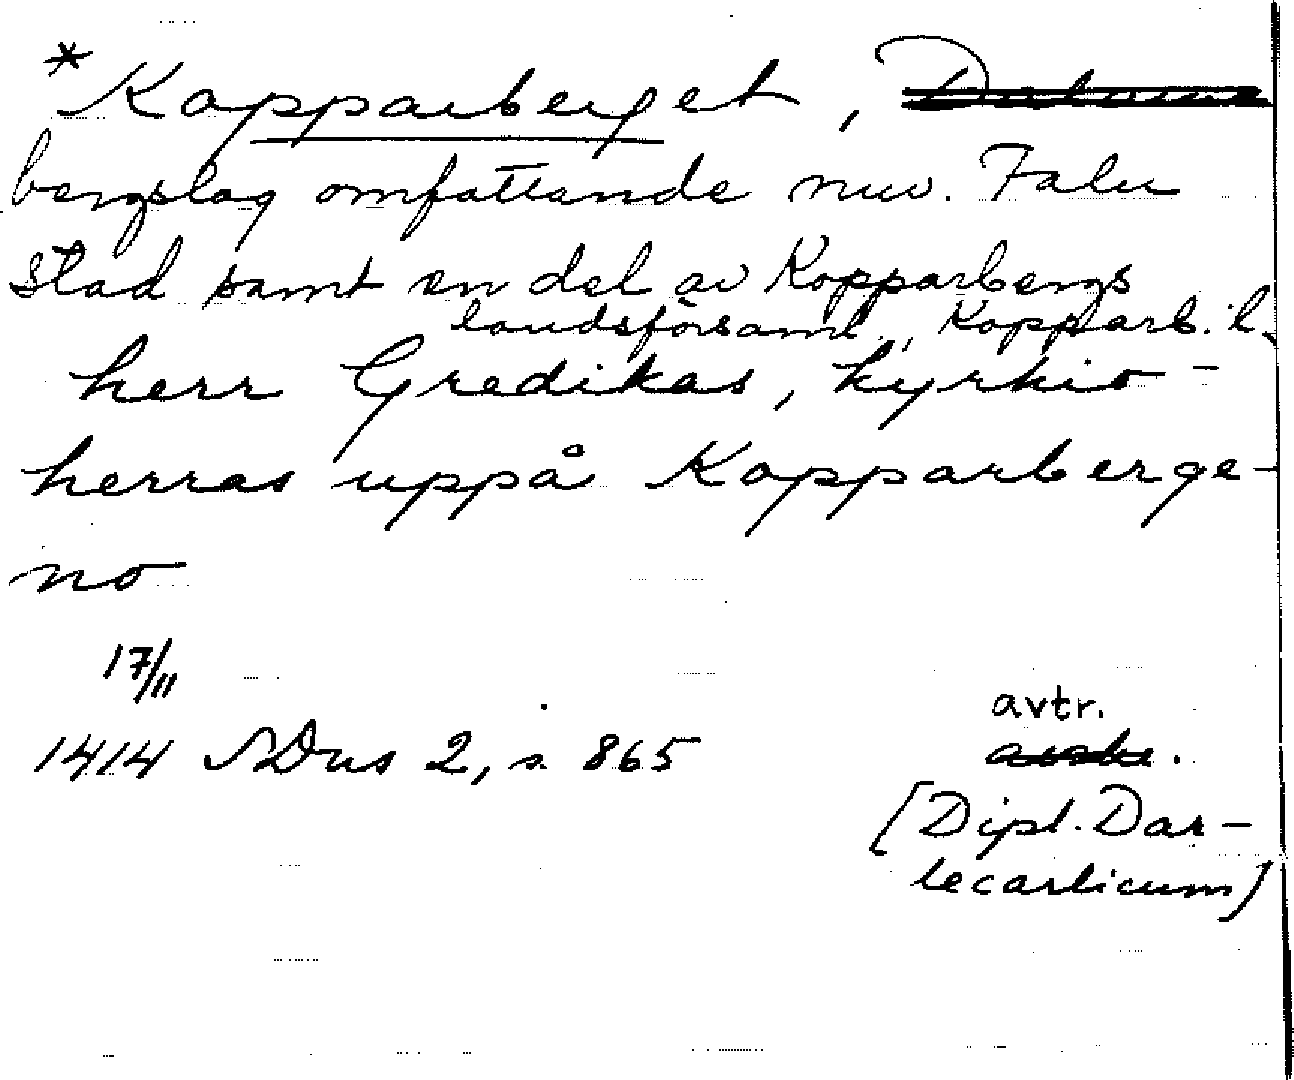 *Kopparberget, Dalarna
bergslag omfattande nuv. Falu
stad samt en del av Kopparbergs
landsförsaml., Kopparb. l.
herr Gredikas, kyrkio-
herras uppå Kopparberge-
no
17/11
1414 SDns 2, s. 865
avtr.
[Dipl. Dar-
lecarlicum]